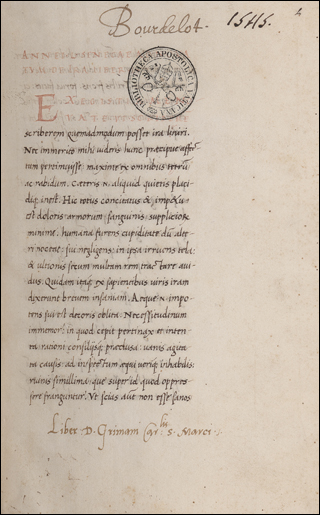 Bourdelot.
1545.
2
BIBLIOTHECA APOSTOLICA VATICANA
E
scriberem quemadmodum posset ira liniri.
Nec immerito mihi uideris hunc praecipue affec
tum pertimuisse: maxime ex omnibus tetru
ac rabidum. Caeteris .n. aliquid quietis placi
diq; inest. Hic totus concitatus &
doloris armorum: sanguinis: suppliciorū
minime humana furens cupiditate dū alte
ri noceat: sui negligens: in ipsa irruens tela:
& ultionis secum multa rem trac
auidus. Quidam itaq; ex sapientibus uiris iram
dixerunt breuem insaniam. Aeque .n. impo
tens sui est decoris oblita: Necessitudinum
immemor: in quod cepit pertinax et inten
ta: rationi consiliisq; praeclusa: uanis agita
ta causis: ad aequi ueriq; inhabilis:
ruinis simillima: que super id quod oppres
sere franguntur. Vt scias aut non esse sanos
Liber D. Grimani Car.lis S. Marci.